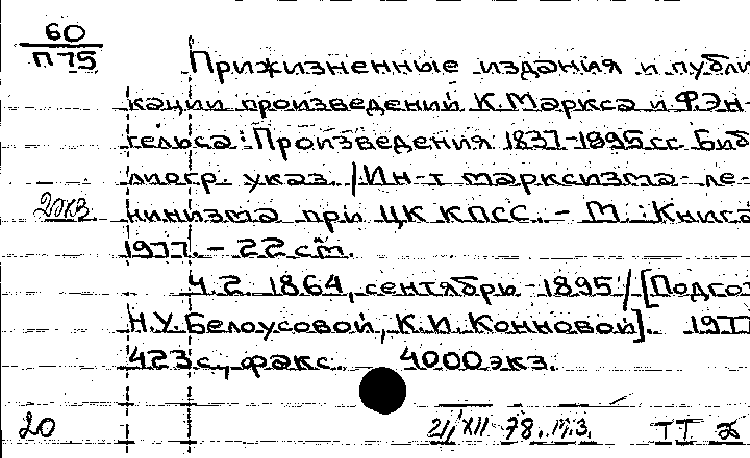 60
П 75
Прижизненные издания и публи
кации произведений К. Маркса и Ф. Эн-
гельса: Произведения 1837-1895 гг. Биб
лиогр. указ. / Ин-т марксизма-ле-
2 экз. нинизма при ЦК КПСС. - М.: Книга
1977. - 22 см.
Ч. 2. 1864, сентябрь - 1895 / [Подгот
Н.У. Белоусовой, К.И. Конновой]. 197
423 с., факс. 4000 экз.
20 21/XII 78.